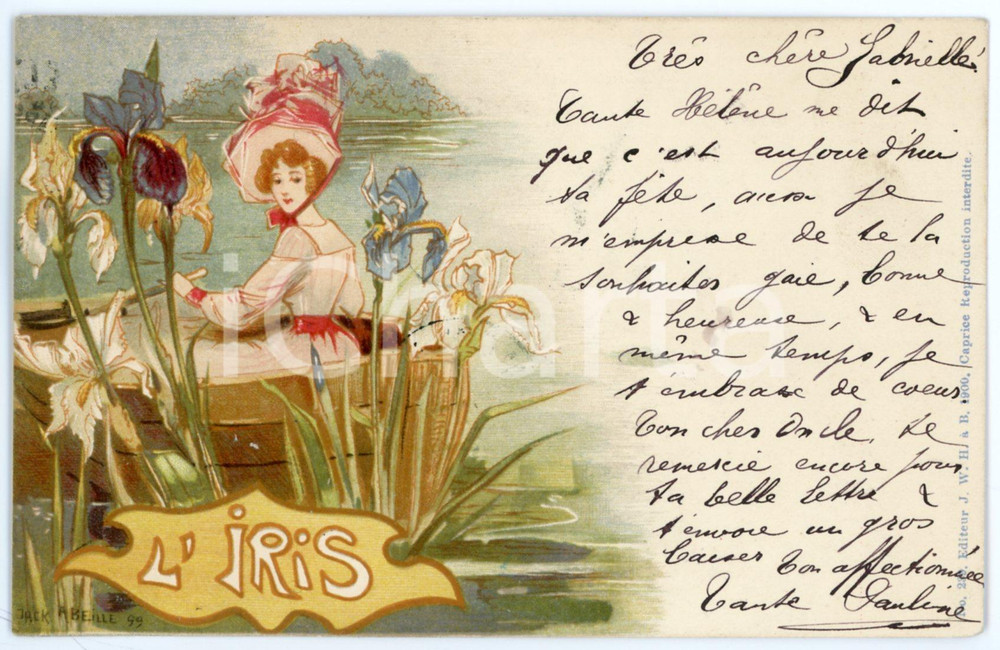 Très chère Gabrielle.
Tante Hélène me dit
que c'est aujourd'hui
ta fête, aussi je
m'empresse de te la
souhaiter gaie, bonne
& heureuse, & en
même temps, je
t'embrasse de coeur
Ton cher Oncle te
remercie encore pour
ta belle lettre &
t'envoie un gros
baiser Ton affectionnée
Tante Pauline
L'IRIS
JACK ABEILLE 99
Editeur J. W. H. à B. 1900. Caprice Reproduction interdite.
ionarta